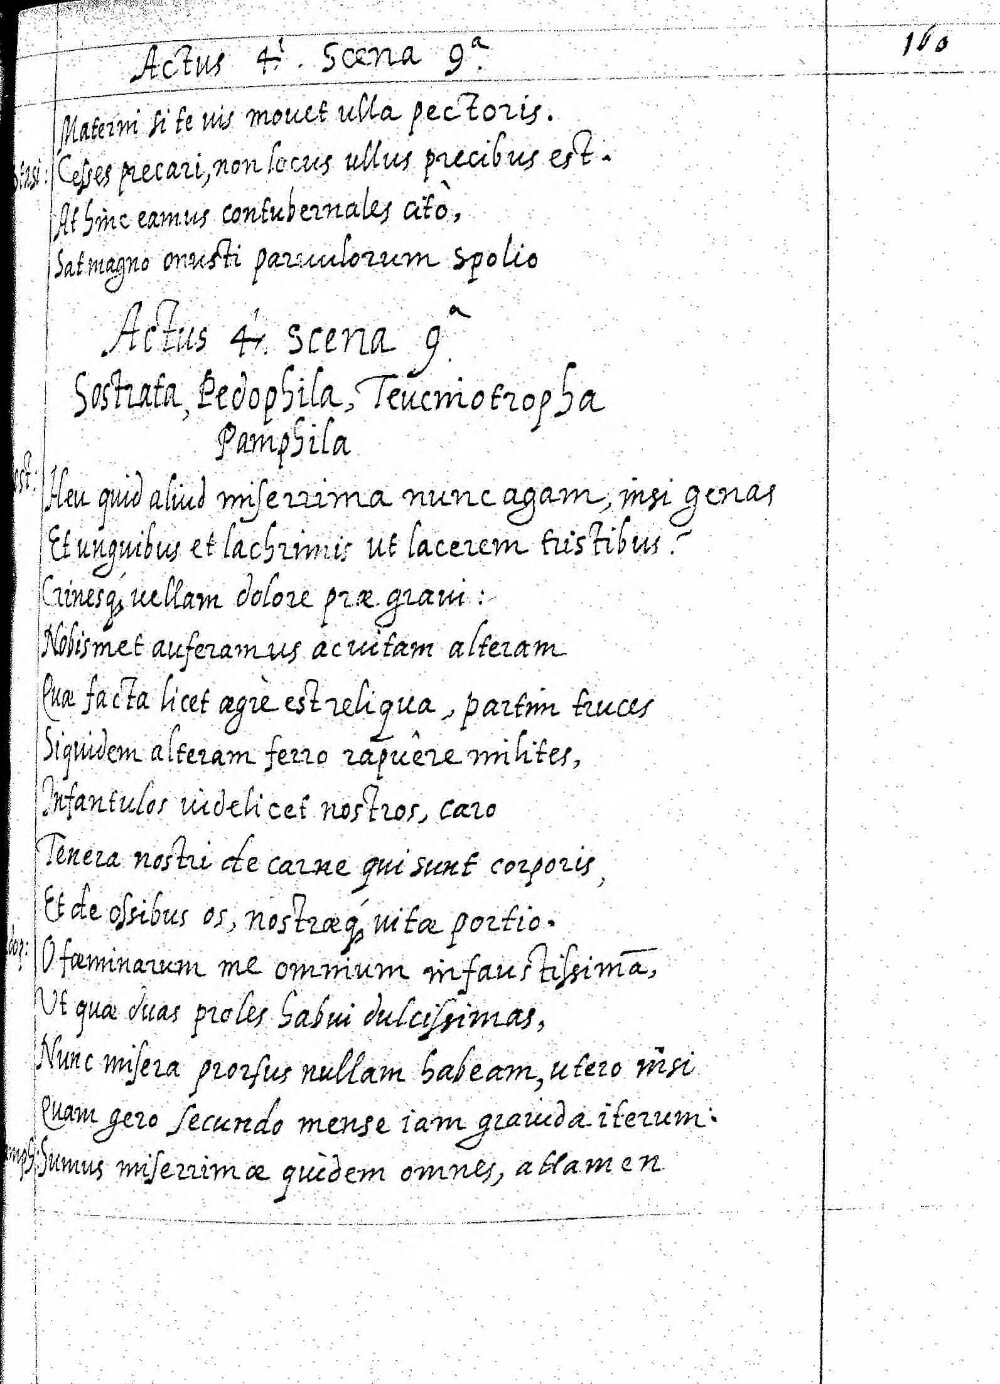 Actus 4.i. Scena 9a.
160
Materni si te uis mouet ulla pectoris.
Cesses precari, non locus ullus precibus est.
At hinc eamus contubernales citò,
Sat magno onusti paruulorum spolio
Actus 4.i. Scena 9.a
Sostrata, Pedophila, Teucniotropha
Pamphila
ost: Heu quid aliud miserrima nunc agam, nisi genas
Et unguibus et lachrimis ut lacerem tristibus?
Crinesq; uellam dolore præ graui:
Nobismet auferamus ac uitam alteram
Quæ facta licet ægrè est reliqua, partim truces
Siquidem alteram ferro rapuêre milites,
Infantulos uidelicet nostros, caro
Tenera nostri de carne qui sunt corporis,
Et de ossibus os, nostræq; uitæ portio.
dop: O fæminarum me omnium infaustissimā,
Ut quæ duas proles habui dulcissimas,
Nunc misera prorsus nullam habeam, utero nisi
Quam gero secundo mense iam grauida iterum.
mph: Sumus miserrimæ quidem omnes, attamen